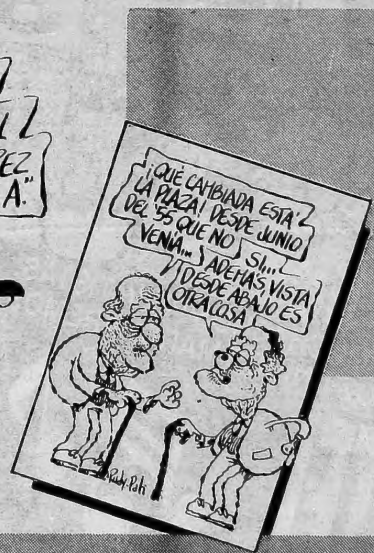 EZ
A."
¡QUÉ CAMBIADA ESTÁ
LA PLAZA! DESDE JUNIO
DEL '55 QUE NO
VENÍA...
SI...
ADEMÁS VISTA
DESDE ABAJO ES
OTRA COSA
Rudy-Pati